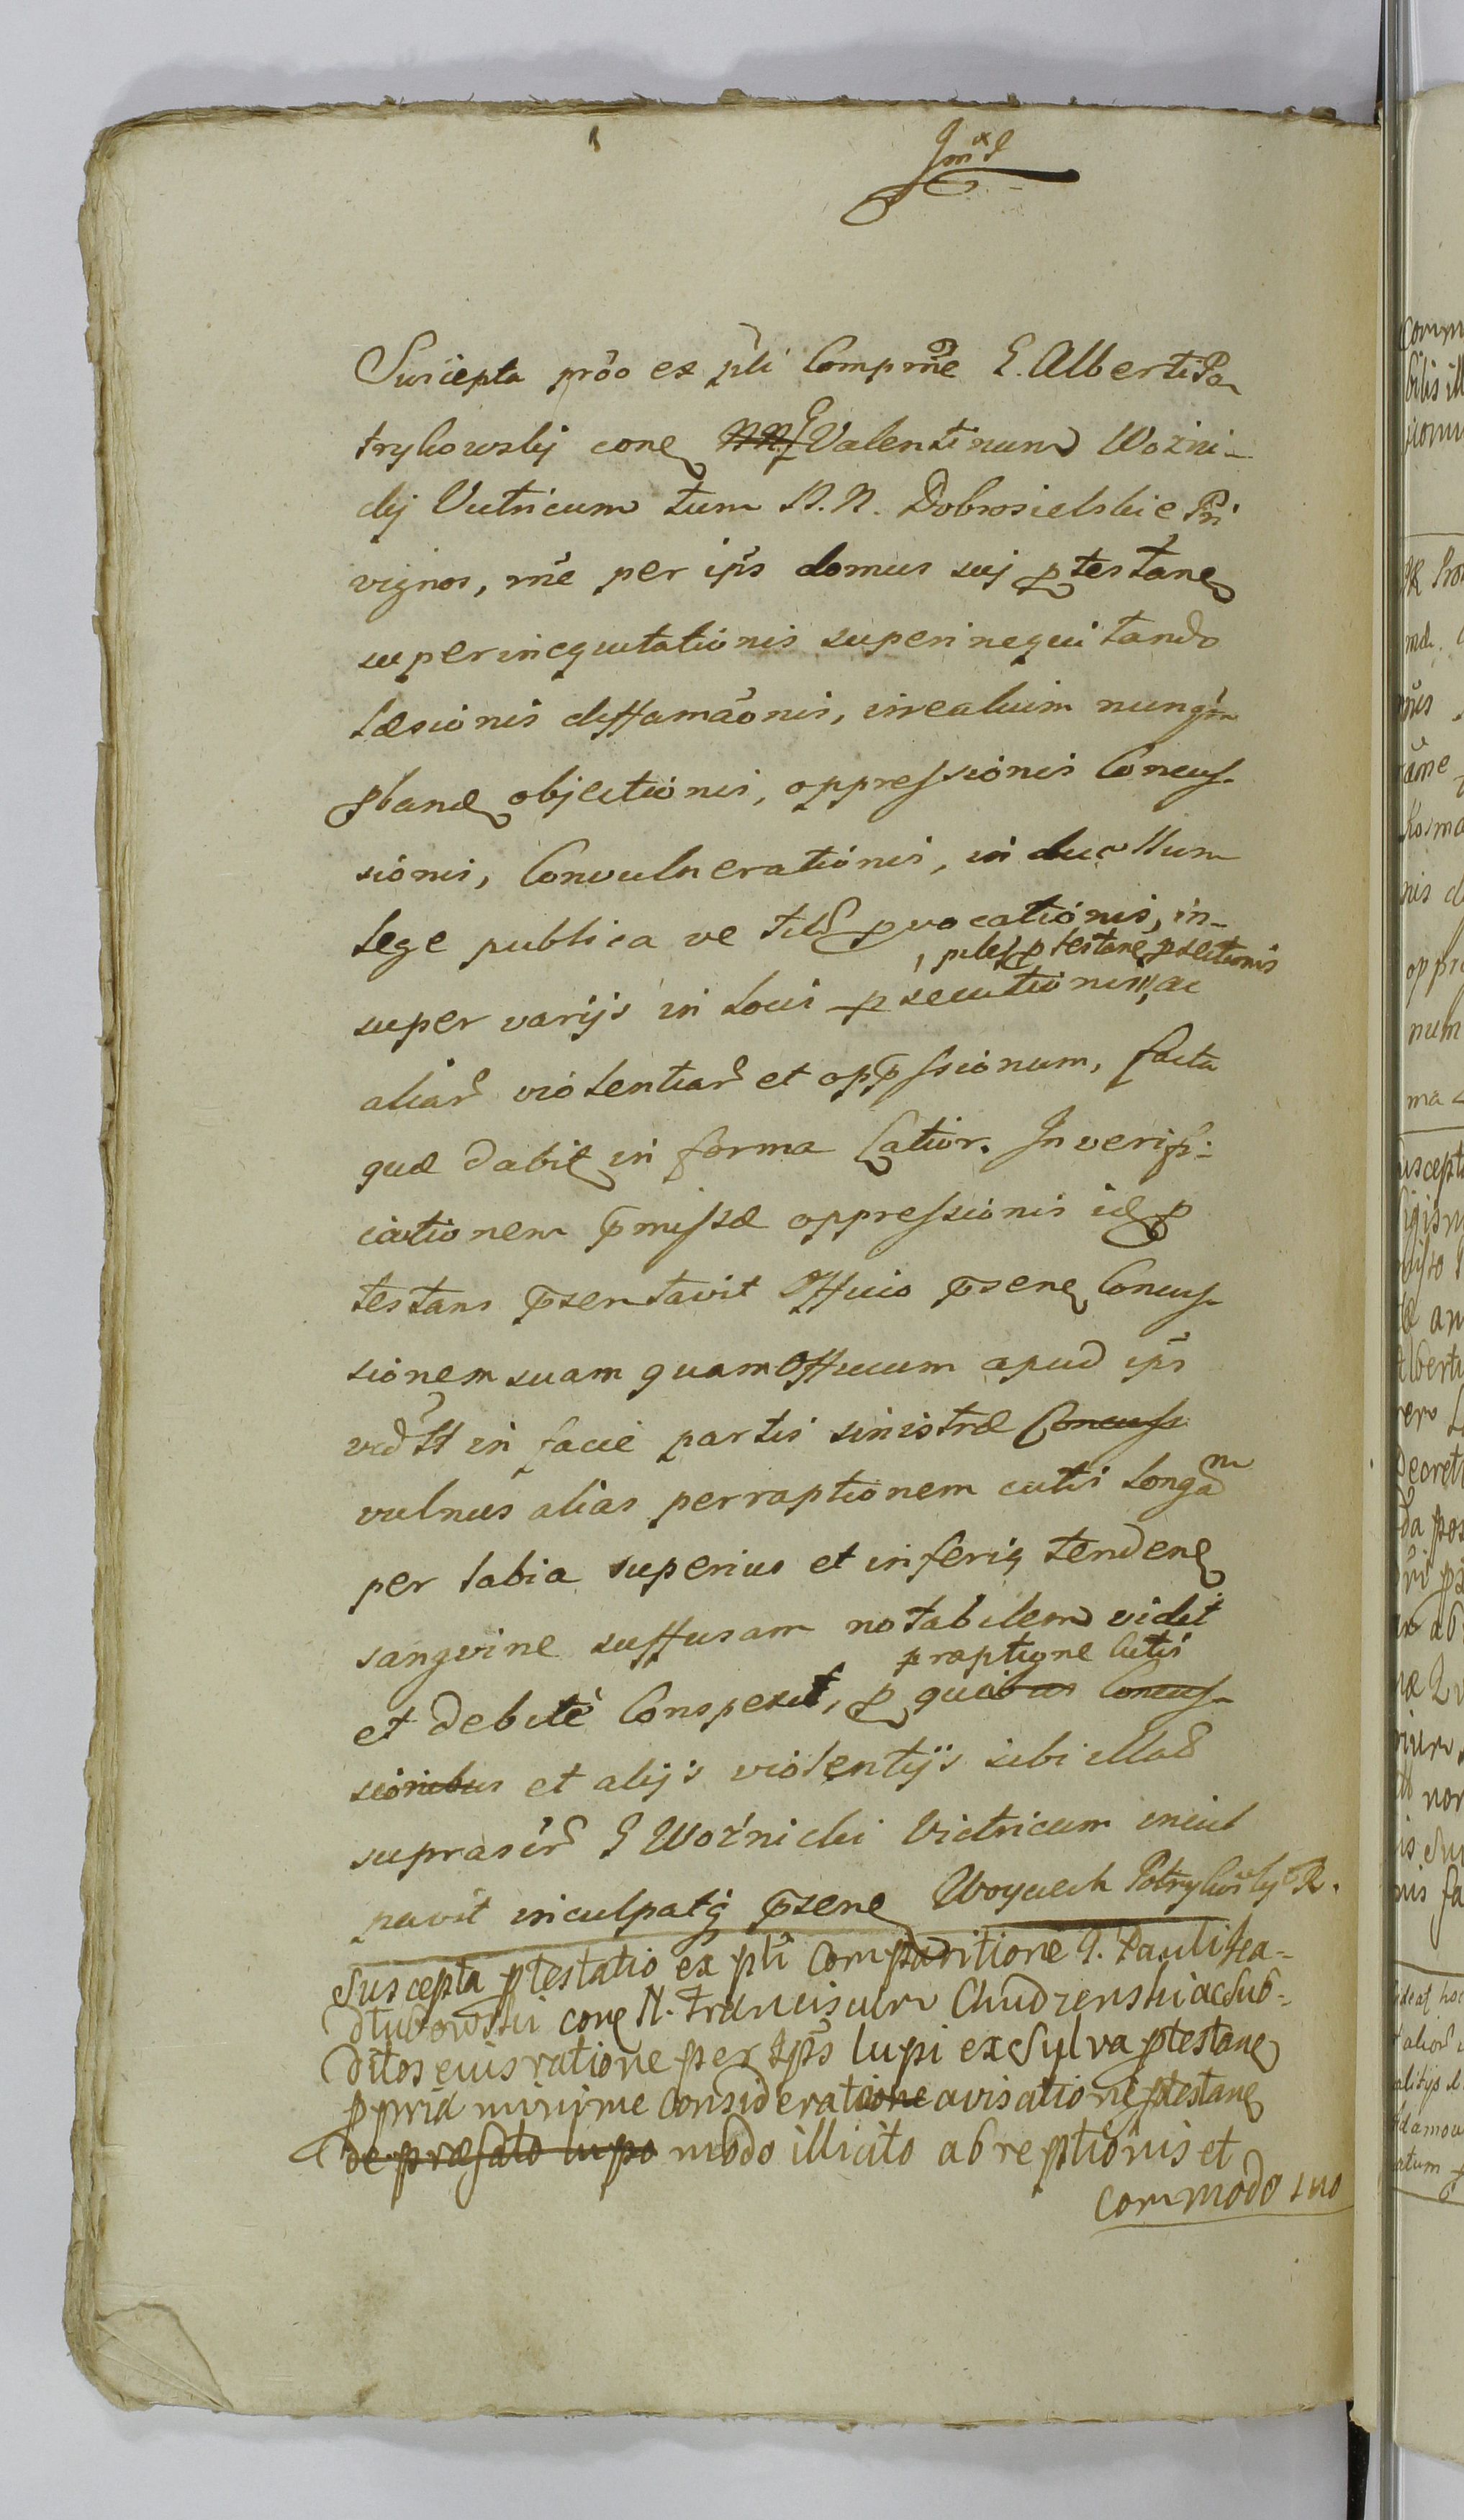 Suscepta prõo ex pti Compmẽ G. Alberti Pa
trykowskij conẽ G Valentinum Wozni-
ckij Vitricum tum N.N. Dobrosielskie Pri
vignos, rñe per ips domus suj ptestanẽ
superinequitationis superinequitando
Læsionis diffamaõnis,
objectionis, oppressionis Concus-
sionis, Convulnerationis, in duellum
Lege publica vetit pvocationis, in-
, ptestanẽ psecutionis
super varijs in Locis psecutionis, ac
aliar violentiar et oppssionum, facta
quæ dabit in forma Latior. In verifi-
cationem pmissæ oppressionis id p
testans psentavit Officio psenẽ Concus-
sionem suam quam Officium apud ips
in facie partis sinistræ Concuss
vulnus alias perraptionem cutis Longam
per Labia superius et inferiq tendenẽ
sangvine suffusam notabilem vidit
praptione Cutis
et debitè Conspexit, p quibus Concus-
sionibus et alijs violentijs sibi illat
suprascr G Woźnicki Victricum incul
pavit inculpatq psenẽ Woyciech Patrykowsky R.
Suscepta ptestatio ex pti comparitione G. Pauli Ska-
dłubowski conẽ N. Franciscum Chudzenski ac Sub-
ditos eius ratione per ips lupi ex Sylva ptestanẽ
ppria minime consideratione avisatione ptestanẽ
de præfato lupo modo illicito abreptionis et
commodo suo